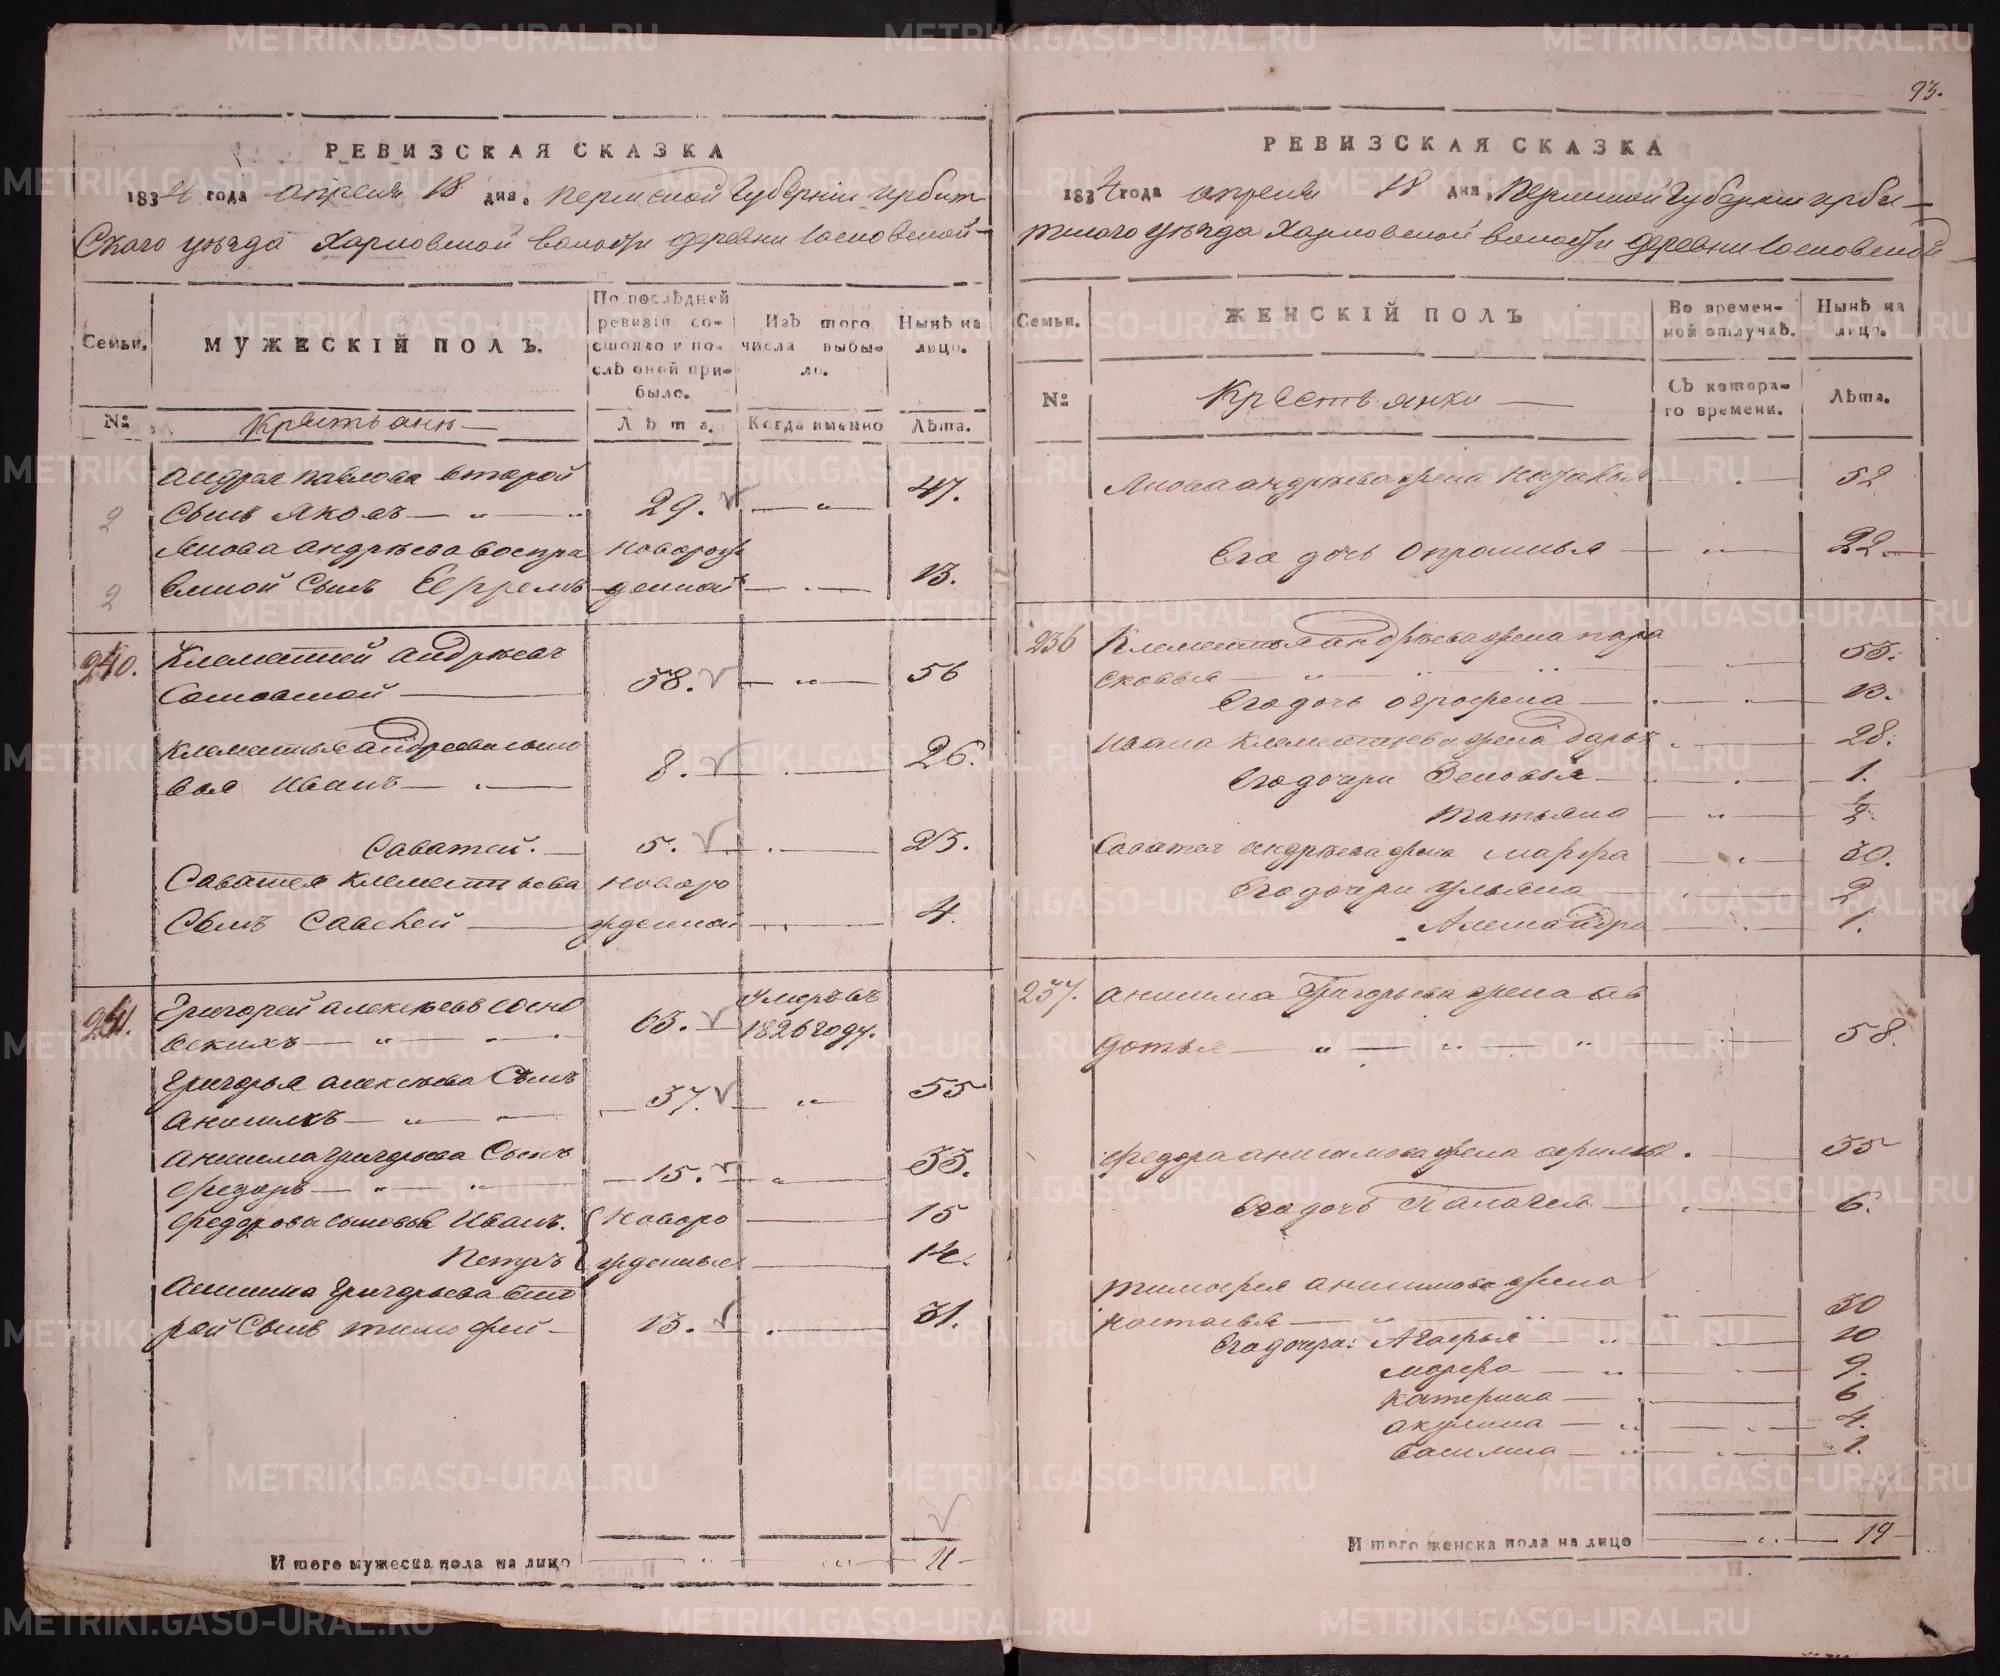 93.
РЕВИЗСКАЯ СКАЗКА
1834 года апреля 18 дня. Пермской Губернии ирбит
ского уезда Харловской волости деревни Сосновской
Семьи.
МУЖЕСКІЙ ПОЛЪ.
По послѣдней
ревизіи со-
стояло и по-
слѣ оной при-
было.
Изъ того
числа выбы-
ло.
Нынѣ на
лицо.
№
Крестьяне
Лѣта.
Когда именно
Лѣта.
Андрея Павлова второй
2 сынъ Яковъ 29. 47.
Якова Андрѣева воспри новорож
2 емной сынъ Ефремъ денной 13.
240. Клементей Андрѣевъ
38. 56
Клементья Андреева сыно
вья Иванъ 8. 26.
Саватей. 5. 23.
Саватея Клементьева новоро
сынъ Савекей жденной 4.
241. Григорей Алексѣевъ Сосно умеръ въ
вскихъ 63. 1826 году.
Григорья Алексѣева сынъ
Анисимъ 37. 55
Анисима Григорьева сынъ
Федоръ 15. 33.
Федорова сыновья Иванъ. новоро 15
Петръ жденные 14.
Анисима Григорьева вто
рой сынъ Тимофей 13. 31.
Итого мужеска пола на лицо 11
РЕВИЗСКАЯ СКАЗКА
1834 года апреля 18 дня, Пермской Губернии ирби
тского уезда Харловской волости деревни Сосновской
Семьи.
ЖЕНСКІЙ ПОЛЪ
Во времен-
ной отлучкѣ.
Нынѣ на
лицо.
№
Крестьянки
Съ котора-
го времени.
Лѣта.
Якова Андрѣева жена Наталья 52
Его дочь Опросинья 22.
236 Клементья Андрѣева жена пара
сковья 53.
Его дочь Огрофена 13.
Ивана Клементьева жена Дарья 28.
Его дочери Зеновья 1.
Татьяна 1/2
Саватея Андрѣева жена Марфа 30.
Его дочери Ульяна 2
Александра 1.
237. Анисима Григорьева жена ав
дотья 58.
Федора Анисимова жена Афимья 35
Его дочь Палагея 6.
Тимофея Анисимова жена
Настасья 30
Его дочери: Агафья 10
Марфа 9.
Катерина 6
Акулина 4.
Василиса 1.
Итого женска пола на лицо 19
METRIKI.GASO-URAL.RU